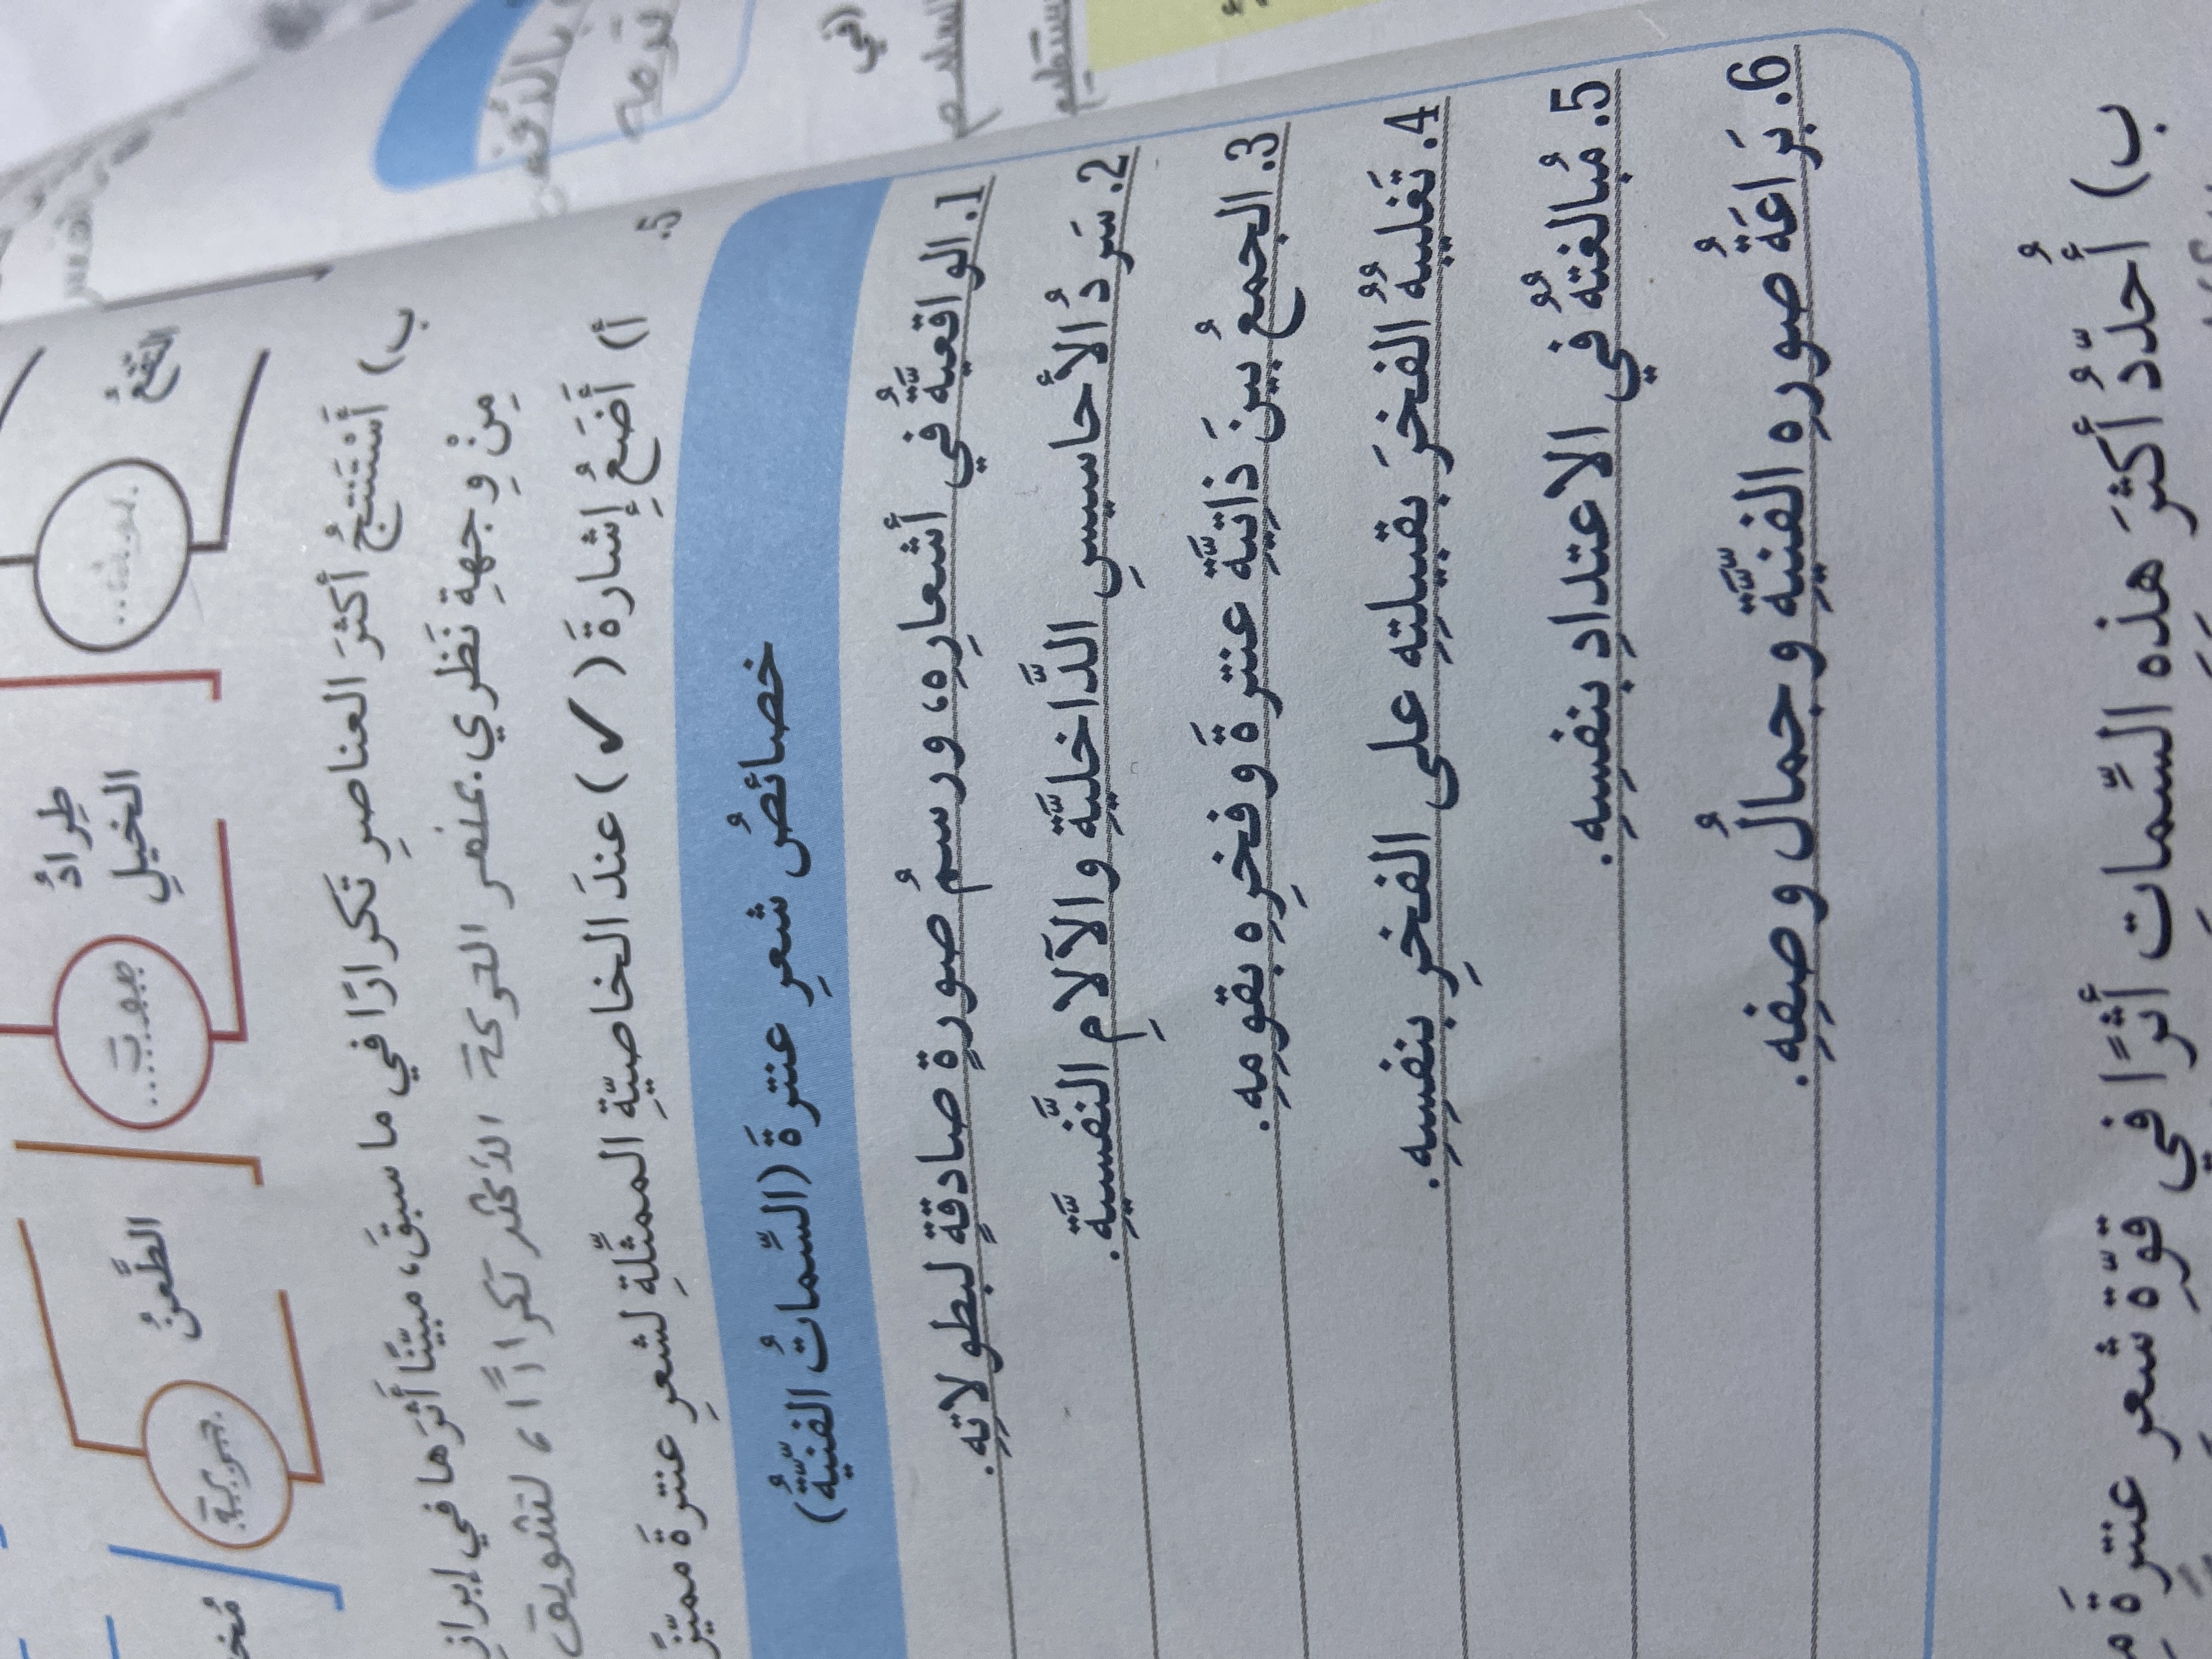 النَّقْعُ
طِرادُ
الخيلِ
صوت
الطَّعنُ
حركة
ب) أَسْتَنتِجُ أكثرَ العناصرِ تكرارًا في ما سبقَ، مبيّنًا أَثرَها في إبرازِ
مِنْ وِجهةِ نَظَري. عنصر الحركة الأكثر تكرارًا، لتشويق
5.
أ) أَضَعُ إشارةَ (✓) عندَ الخاصيّةِ الممثِّلةِ لشعرِ عنترةَ مميّزً
خصائصُ شعرِ عنترةَ (السِّماتُ الفنيّةُ)
1. الواقعيّةُ في أشعارِه، ورسمُ صورةٍ صادقةٍ لبطولاتِه.
2. سَردُ الأحاسيسِ الدَّاخليَّةِ والآلامِ النَّفسيَّةِ.
3. الجمعُ بينَ ذاتيَّةِ عنترةَ وفخرِه بقومِه.
4. تَغليبُهُ الفخرَ بقبيلتِه على الفخرِ بنفسِه.
5. مُبالغتُهُ في الاعتدادِ بنفسِه.
6. بَراعَةُ صورِه الفنيَّةِ وجمالُ وصفِه.
ب) أُحدّدُ أكثرَ هذِه السِّماتِ أثرًا في قوّةِ شعرِ عنترةَ